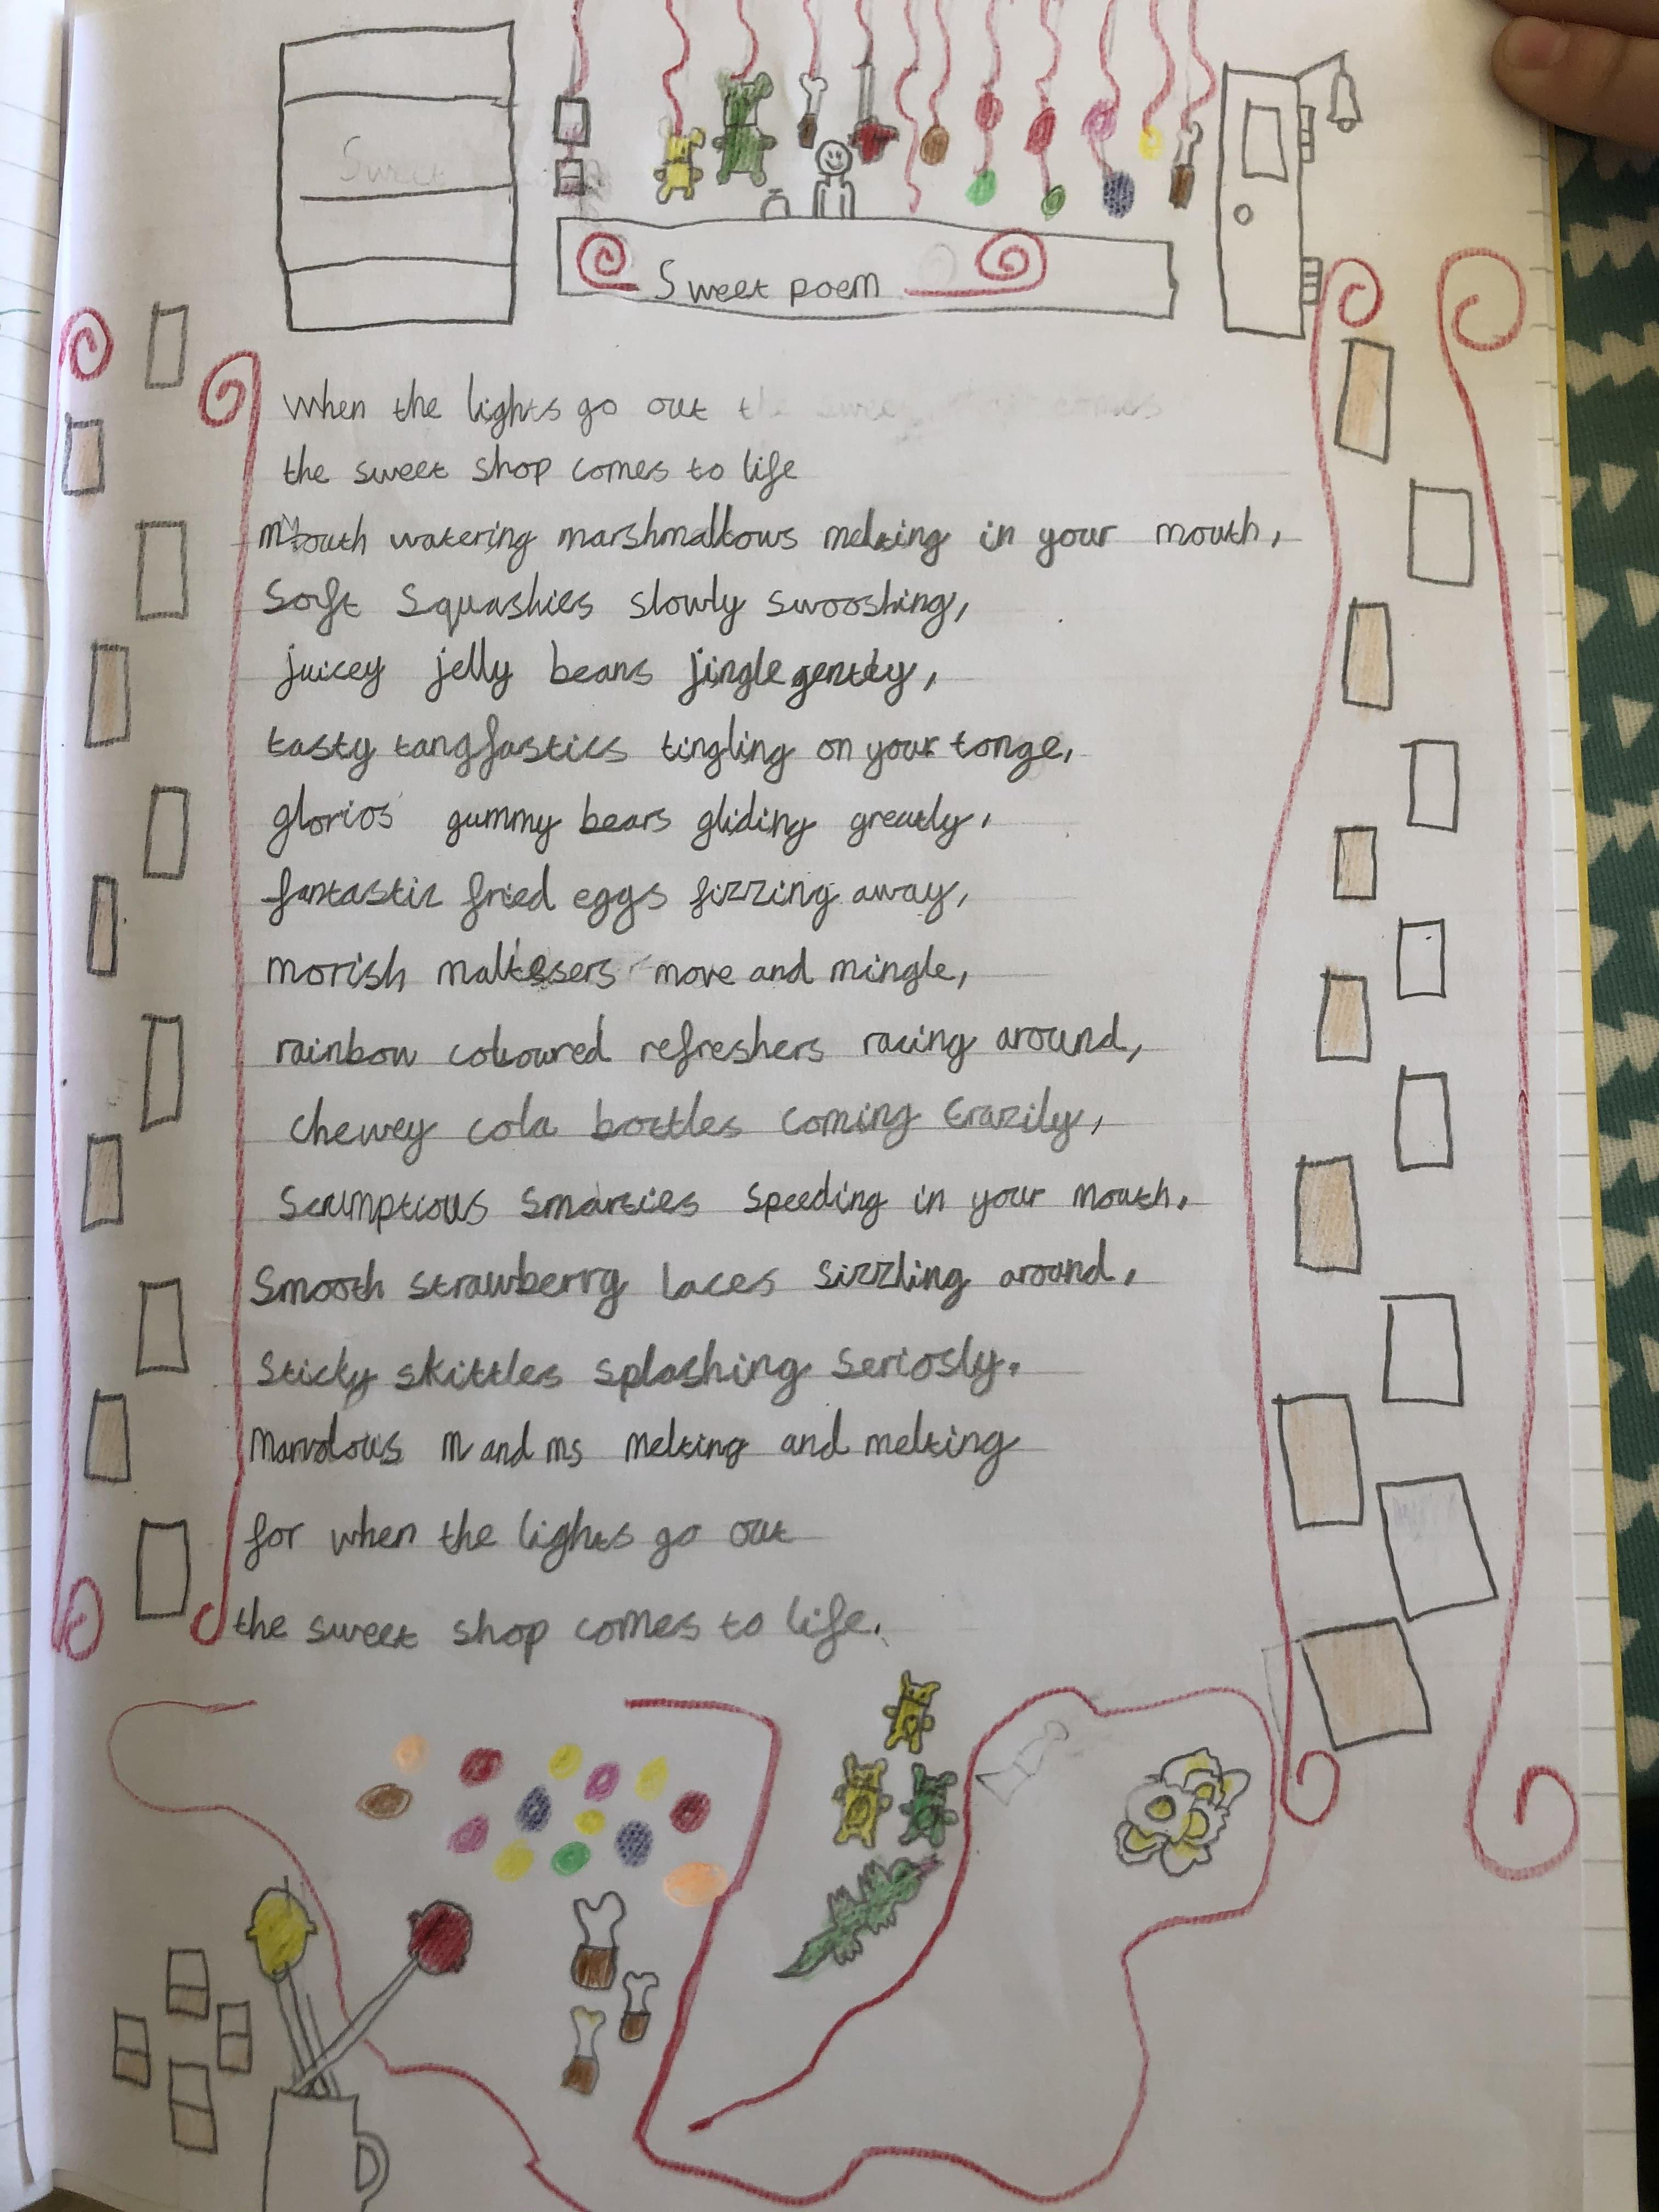 Sweet
Sweet poem
When the lights go out
the sweet shop comes to life
mouth watering marshmallows melting in your mouth,
Soft Squashies slowly swooshing,
juicey jelly beans jingle gently,
tasty tangfastics tingling on your tonge,
glorios gummy bears gliding greatly,
fantastic fried eggs fizzing away,
morish maltesers move and mingle,
rainbow coloured refreshers racing around,
chewey cola bottles coming Crazily,
Scrumptious Smarties speeding in your mouth,
Smooth strawberry laces sizzling around,
Sticky skittles splashing seriosly,
Marvolous M and ms melting and melting
for when the lights go out
the sweet shop comes to life.